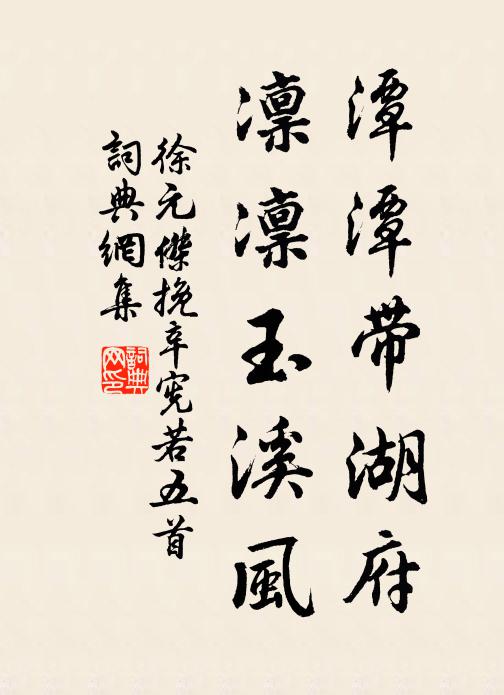 潭潭带湖府
凛凛玉溪風
徐元傑挽辛宪若五首
詞典網集
詞典网印